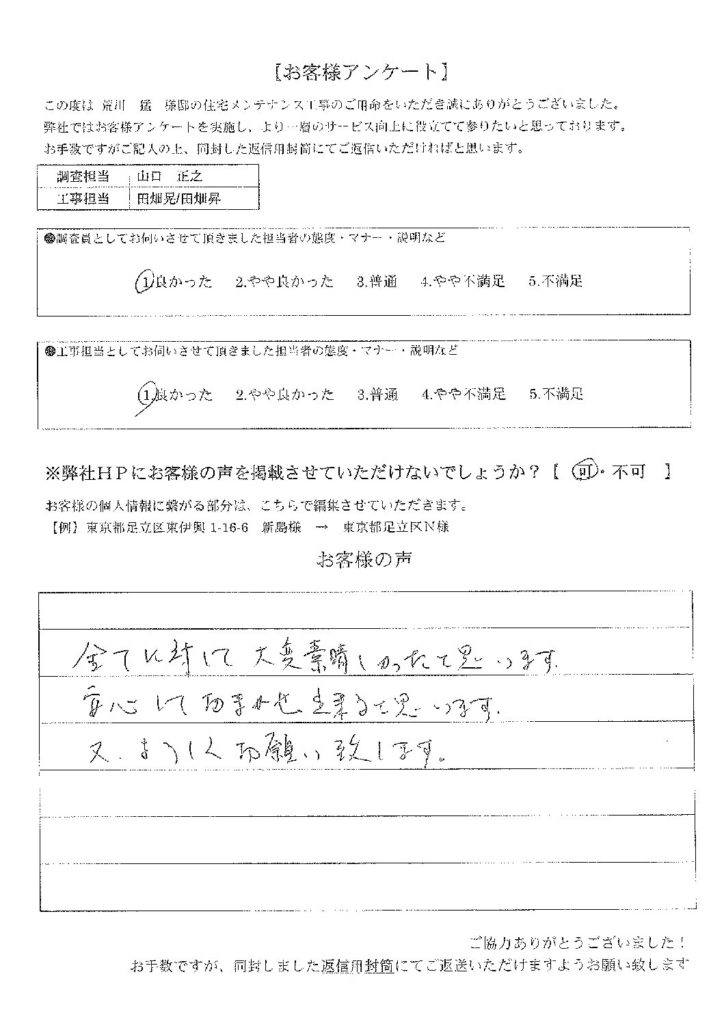 【お客様アンケート】
この度は 荒川 猛 様邸の住宅メンテナンス工事のご用命をいただき誠にありがとうございました。
弊社ではお客様アンケートを実施し、より一層のサービス向上に役立てて参りたいと思っております。
お手数ですがご記入の上、同封した返信用封筒にてご返信いただければと思います。
調査担当 山口 正之
工事担当 田畑晃/田畑昇
●調査員としてお伺いさせて頂きました担当者の態度・マナー・説明など
1.良かった 2.やや良かった 3.普通 4.やや不満足 5.不満足
●工事担当としてお伺いさせて頂きました担当者の態度・マナー・説明など
1.良かった 2.やや良かった 3.普通 4.やや不満足 5.不満足
※弊社HPにお客様の声を掲載させていただけないでしょうか?【 可・不可 】
お客様の個人情報に繋がる部分は、こちらで編集させていただきます。
【例】東京都足立区東伊興 1-16-6 新島様 → 東京都足立区N様
お客様の声
全てに対して大変素晴しかったと思います.
安心しておまかせ出来ると思います.
又、よろしくお願い致します。
ご協力ありがとうございました!
お手数ですが、同封しました返信用封筒にてご返送いただけますようお願い致します